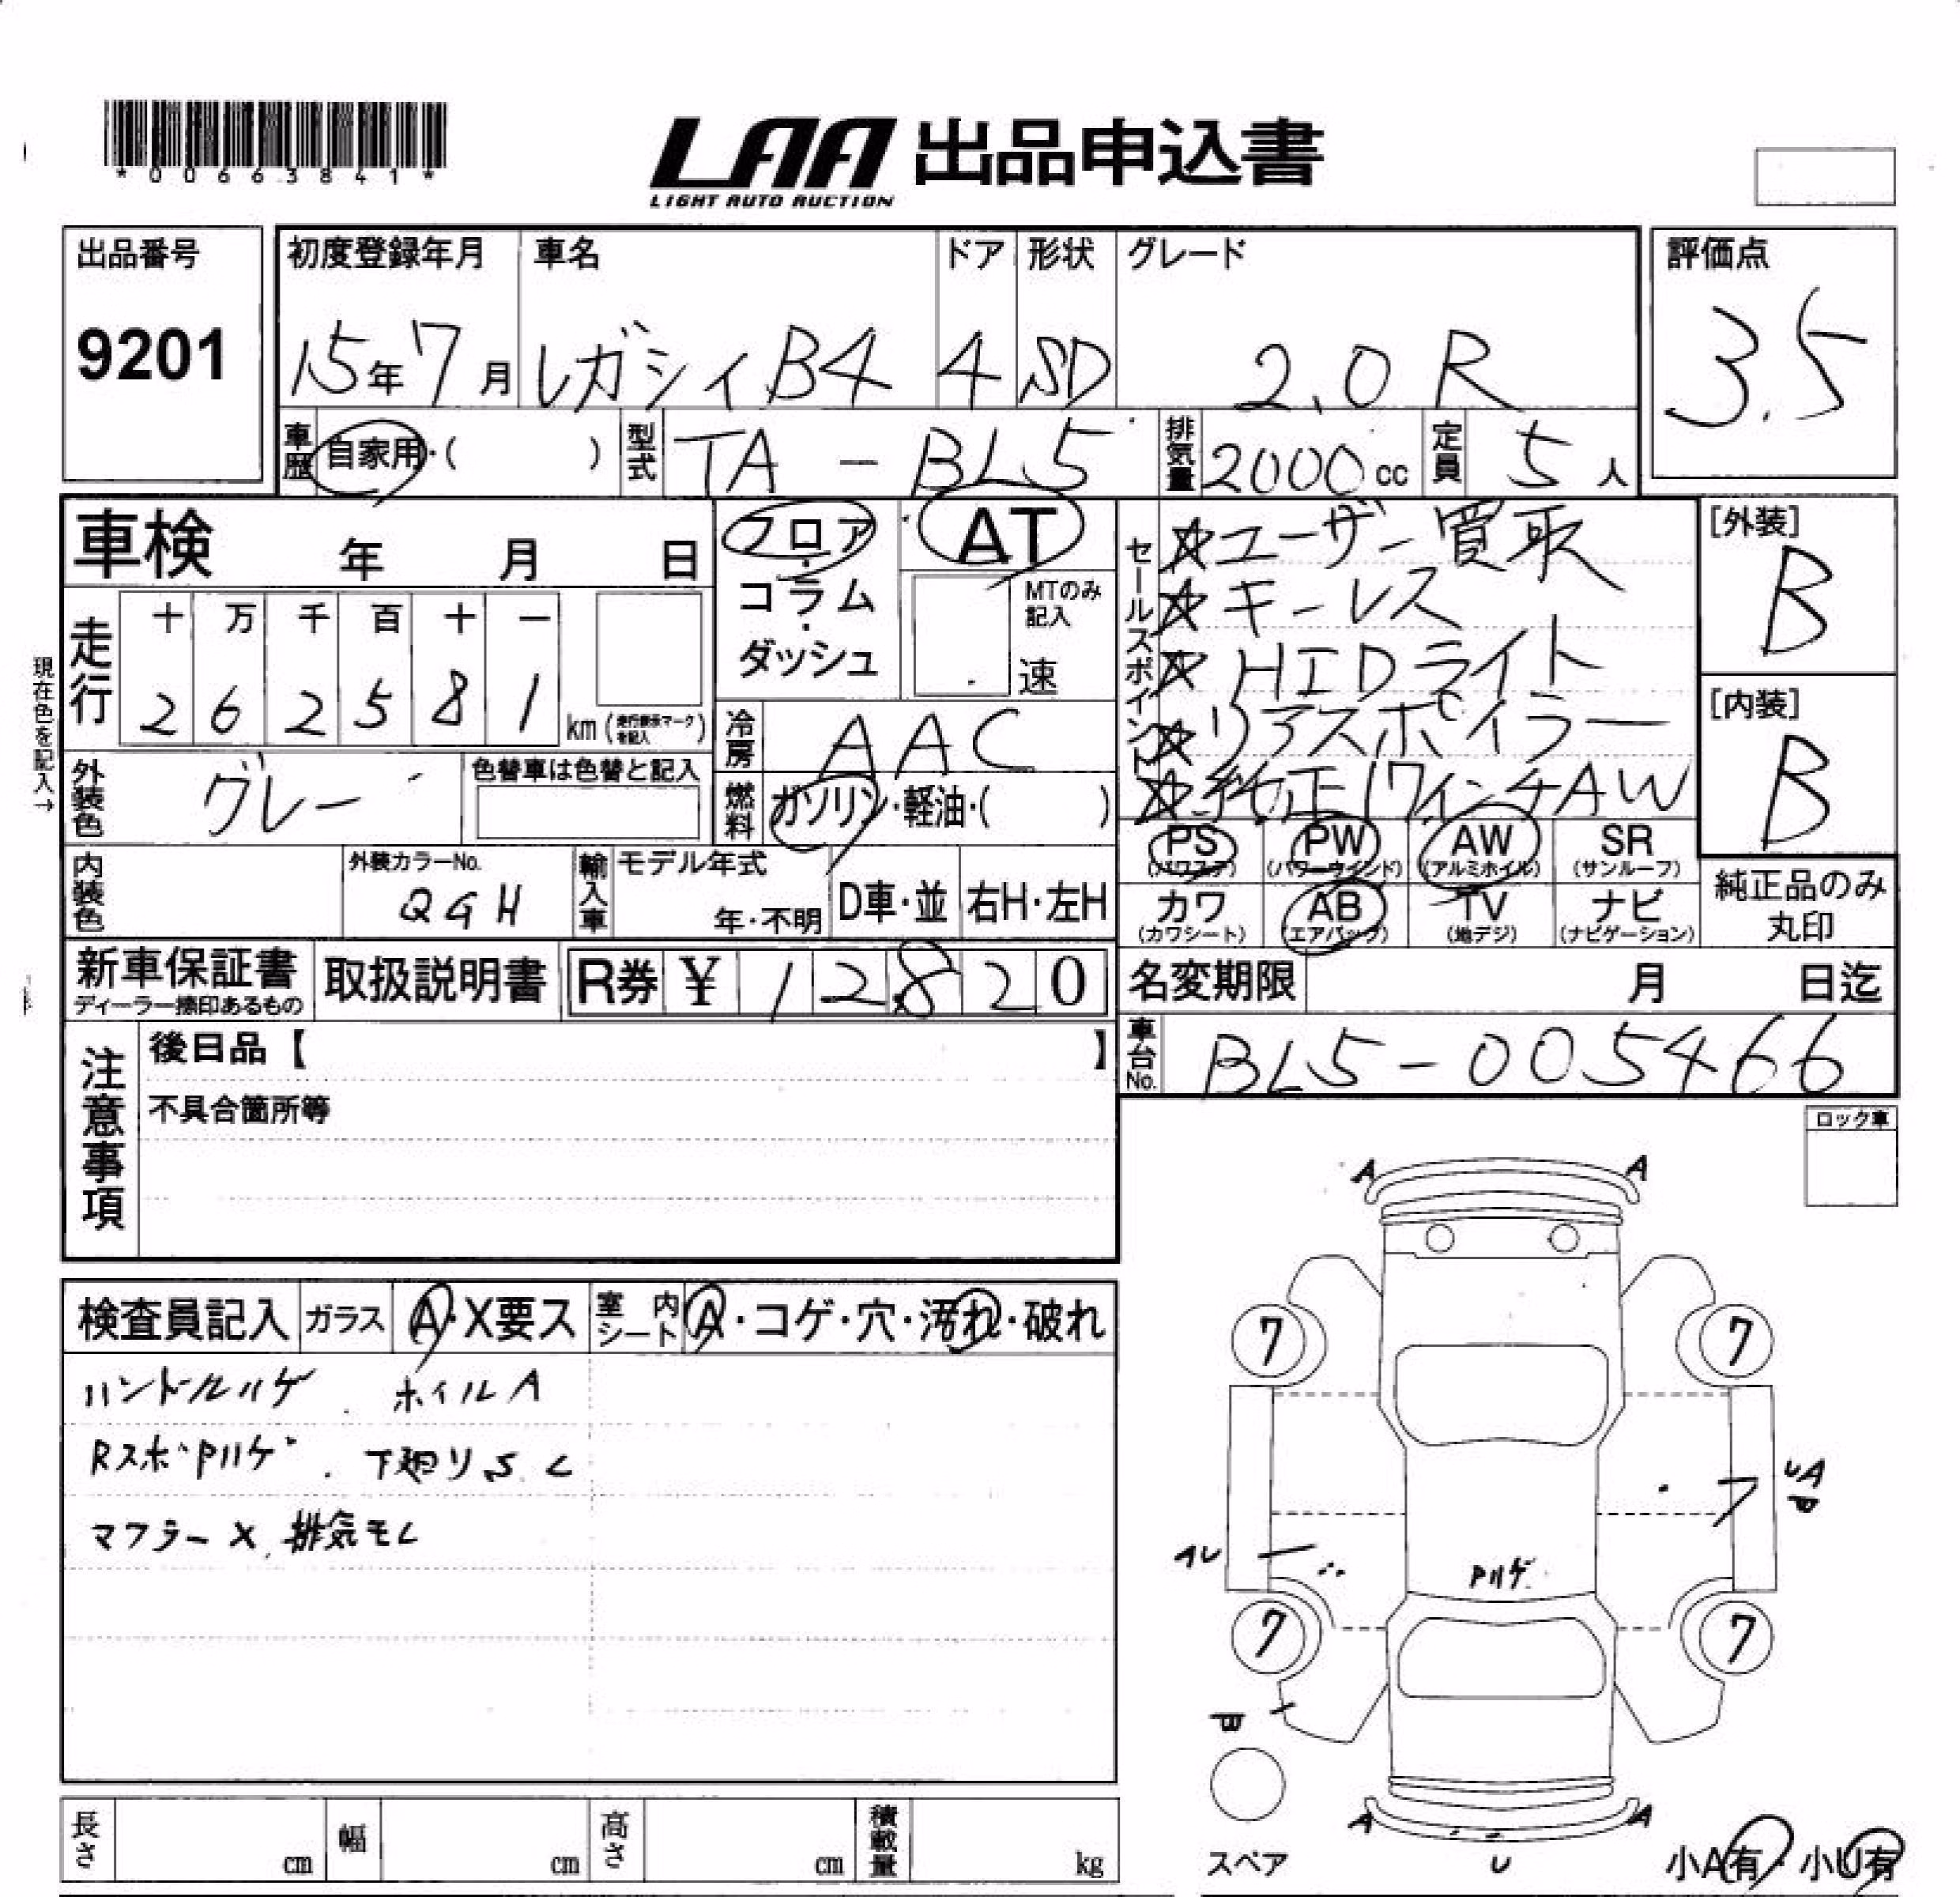 *00663841*
LAA 出品申込書
LIGHT AUTO AUCTION
出品番号
9201
初度登録年月 車名 ドア 形状 グレード
15年7月 レガシィB4 4 SD 2.0 R
評価点
3.5
車歴 自家用・( ) 型式 TA-BL5 排気量 2000cc 定員 5人
車検 年 月 日
フロア・コラム・ダッシュ
AT
MTのみ記入
速
セールスポイント
☆ユーザー買取
☆キーレス
☆HIDライト
☆リアスポイラー
☆純正17インチAW
[外装]
B
[内装]
B
現在色を記入→
走行 十 万 千 百 十 一
2 6 2 5 8 1 km (走行表示マークを記入)
冷房 AAC
外装色 グレー 色替車は色替と記入
燃料 ガソリン・軽油・( )
内装色 外装カラーNo. QGH
輸入車 モデル年式 年・不明 D車・並 右H・左H
PS (パワステ) PW (パワーウインド) AW (アルミホイル) SR (サンルーフ)
カワ (カワシート) AB (エアバック) TV (地デジ) ナビ (ナビゲーション)
純正品のみ丸印
新車保証書 ディーラー捺印あるもの 取扱説明書 R券 ¥ 12820
名変期限 月 日迄
車台No. BL5-005466
注意事項
後日品【 】
不具合箇所等
ロック車
検査員記入 ガラス A・X要ス 室内シート A・コゲ・穴・汚れ・破れ
ハンドルハゲ. ホイルA
RスポPハゲ. 下廻りS.C
マフラーX. 排気モレ
A A
7 7
UA
P
AU
Pハゲ
7 7
B
A A
U
スペア
小A有・小U有
長さ cm 幅 cm 高さ cm 積載量 kg